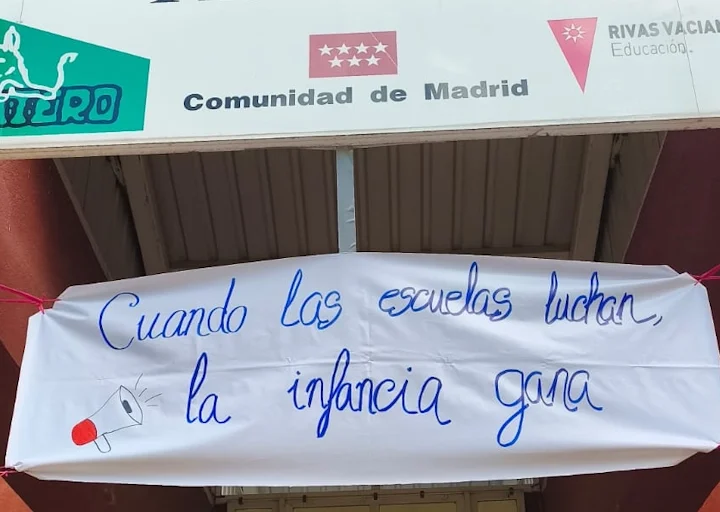 Comunidad de Madrid
RIVAS VACIAM
Educación.
Cuando las escuelas luchan,
la infancia gana